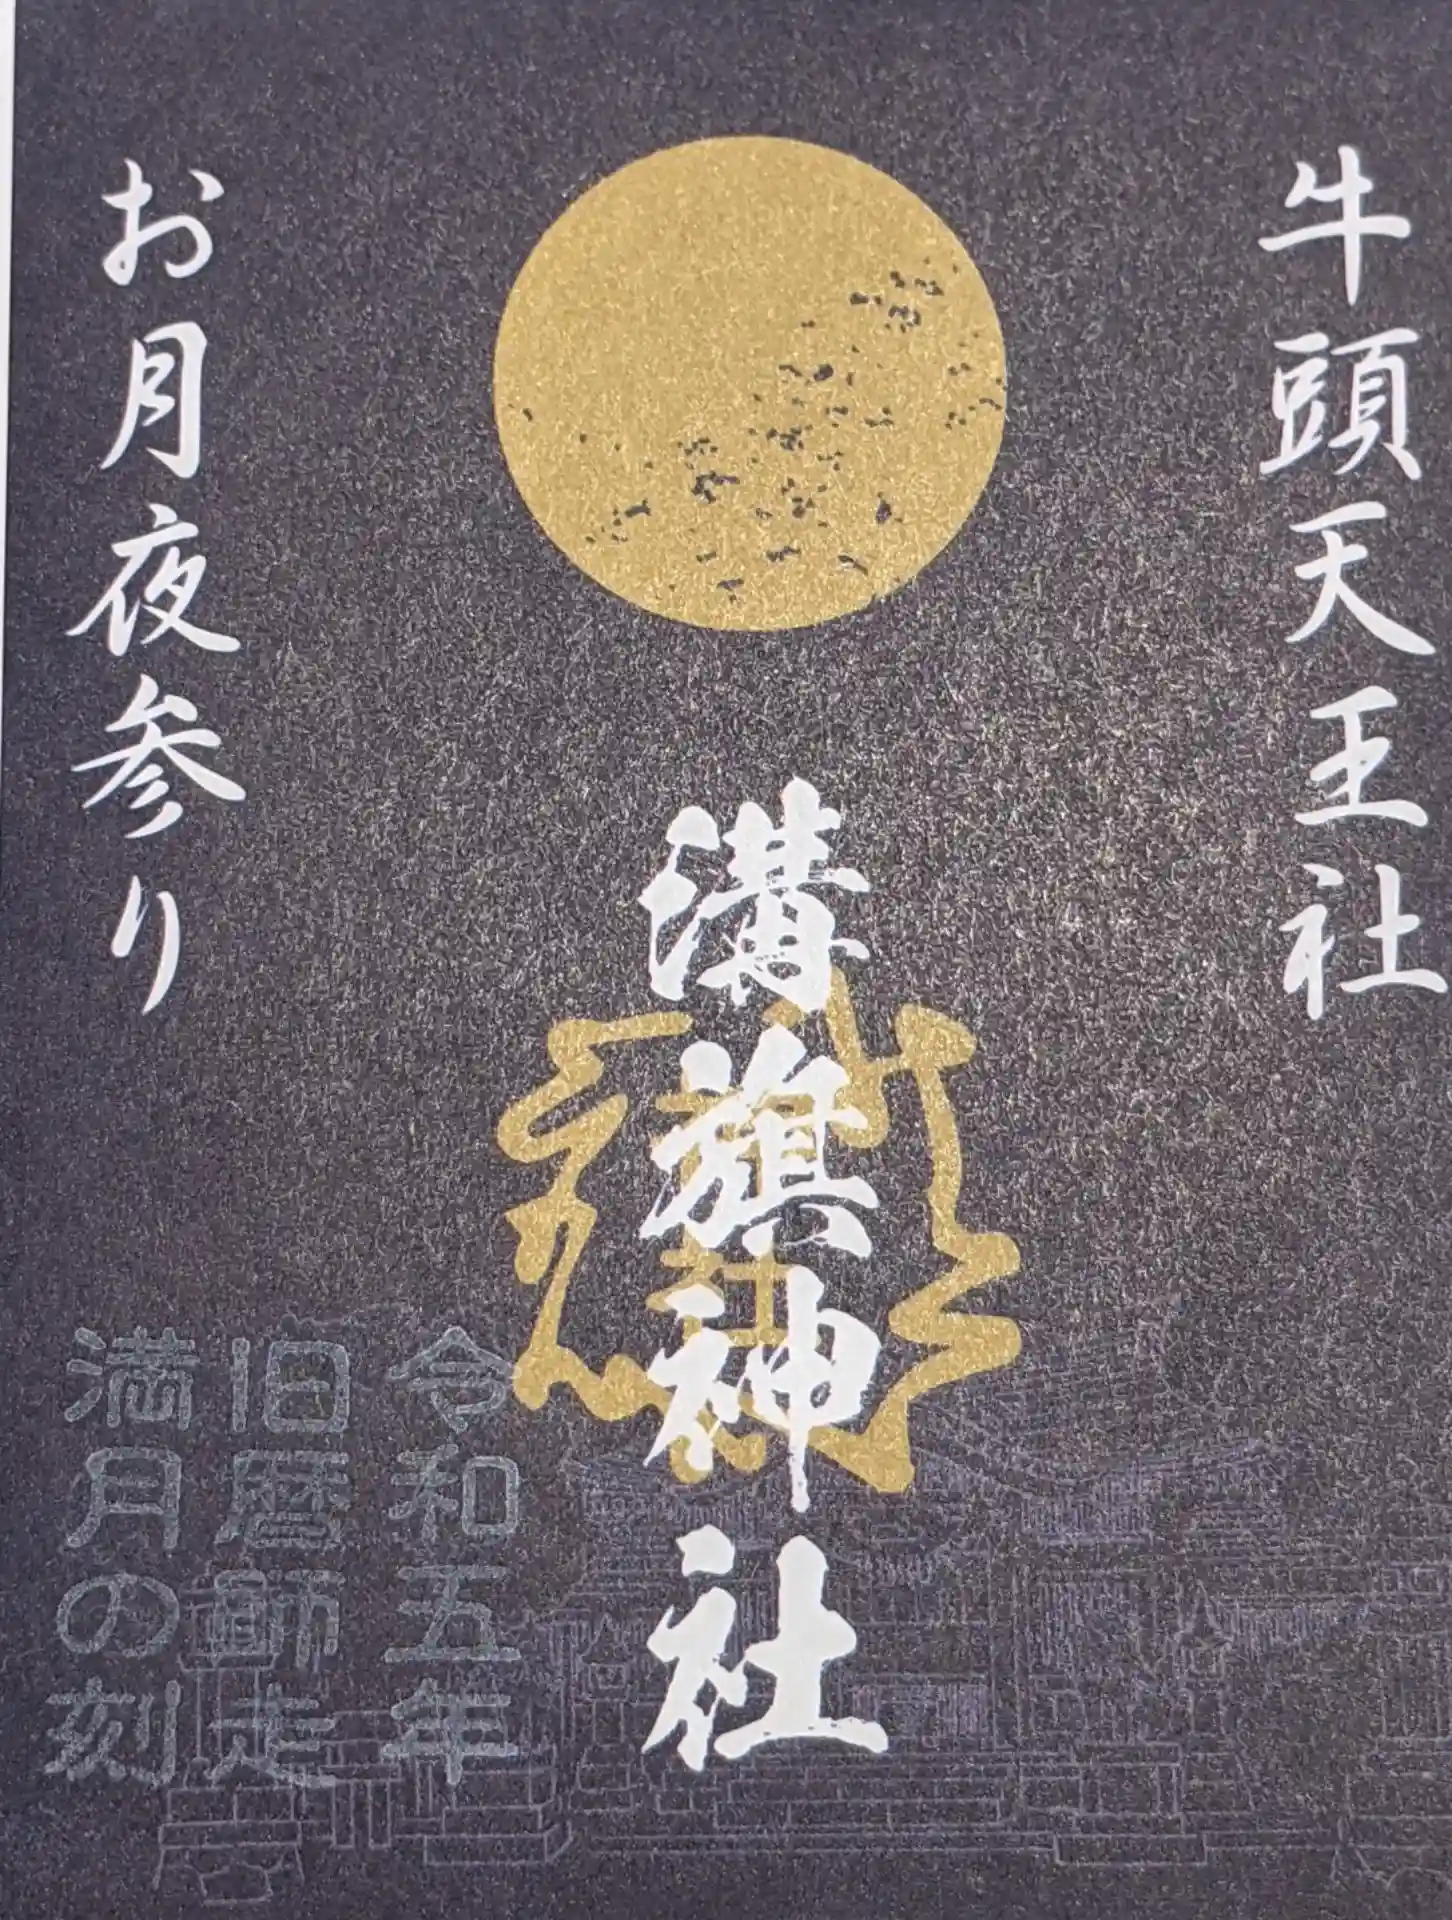 牛頭天王社
溝旗神社
お月夜参り
令和五年
旧暦師走
満月の刻